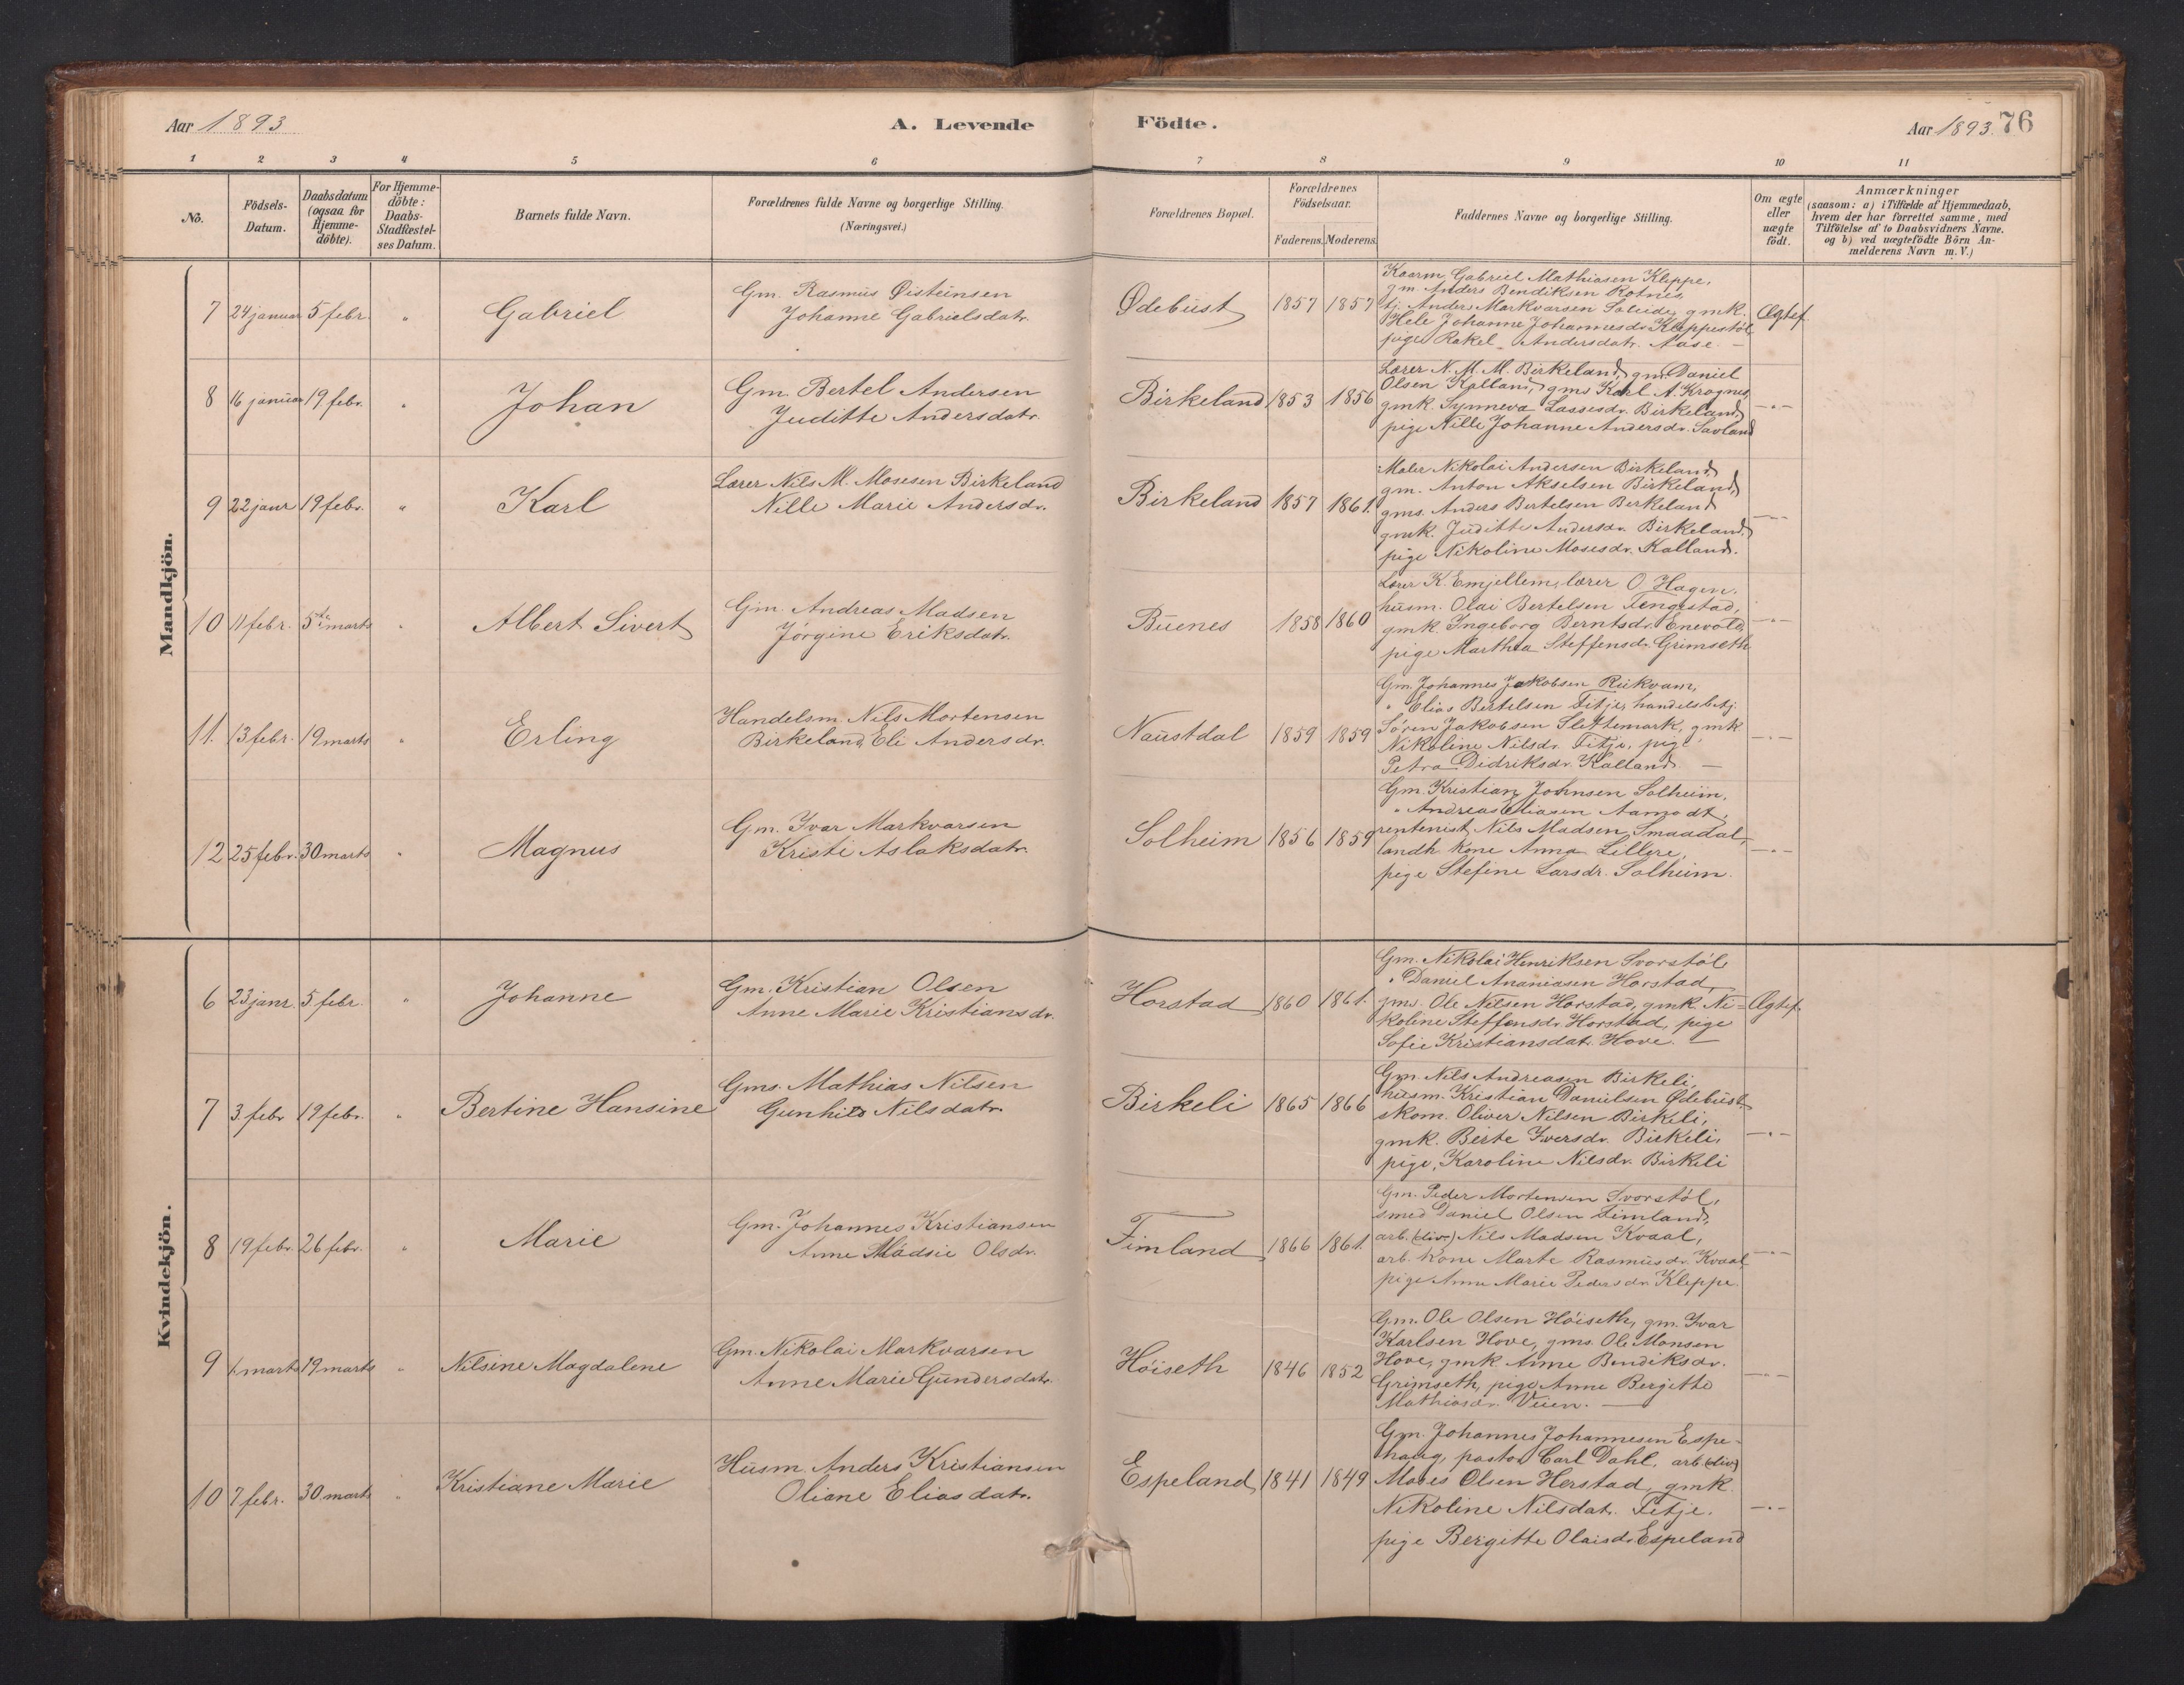 Aar 1893
A. Levende
Födte.
Aar 1893. 76
1 2 3 4 5 6 7 8 9 10 11
No.
Födsels-
Datum.
Daabsdatum
(ogsaa for
Hjemme-
döbte).
For Hjemme-
döbte:
Daabs-
Stadfæstel-
ses Datum.
Barnets fulde Navn.
Forældrenes fulde Navne og borgerlige Stilling.
(Næringsvei.)
Forældrenes Bopæl.
Forældrenes
Födselsaar.
Faderens. Moderens.
Faddernes Navne og borgerlige Stilling.
Om ægte
eller
uægte
födt.
Anmærkninger
(saasom: a) i Tilfælde af Hjemmedaab,
hvem der har forrettet samme, med
Tilföielse af to Daabsvidners Navne.
og b) ved uægtefödte Börn An-
melderens Navn m. V.)
Mandkjön.
7 24 januar 5 febr. " Gabriel
Gm. Rasmus Øisteinsen
Johanne Gabrielsdatr.
Ødebust 1857 1857
Kaarm. Gabriel Mathiasen Kleppe,
gm. Anders Bendiksen Rotnes,
tj. Anders Markvarsen Solheide, gmk.
Hele Johanne Johannesdr. Kleppestøl
pige Rakel Andersdatr. Aase. —
Ægtef.
8 16 januar 19 febr. " Johan
Gm. Bertel Andersen
Juditte Andersdatr.
Birkeland 1853 1856
Lærer N. M. M. Birkeland, gm. Daniel
Olsen Kalland, gms. Karl A. Krognes,
gmk. Synneva Lassesdr. Birkeland,
pige Nille Johanne Andersdr. Savland
—"—
9 22 janr 19 febr. " Karl
Lærer Nils M. Mosesen Birkeland
Nille Marie Andersdr.
Birkeland 1857 1861.
Maler Nikolai Andersen Birkeland,
gm. Anton Akselsen Birkeland,
gms. Anders Bertelsen Birkeland
gmk. Juditte Andersdr. Birkeland,
pige Nikoline Mosesdr. Kalland.
—"—
10 11 febr. 5te marts " Albert Sivert
Gm. Andreas Madsen
Jørgine Eriksdatr.
Buenes 1858 1860
Lærer K. Emjellem, lærer O. Hagen,
husm. Olai Bertelsen Fengestad,
gmk. Ingeborg Berntsdr. Enevold,
pige Marthea Steffensdr. Grimseth
—"—
11. 13 febr. 19 marts " Erling
Handelsm. Nils Mortensen
Birkeland, Eli Andersdr.
Naustdal 1859 1859
Gm. Johannes Jakobsen Rukvam,
" Elias Bertelsen Fitje, handelsbetj.
Søren Jakobsen Slettemark, gmk
Nikoline Nilsdr. Fitje, pige
Petra Didriksdr. Kalland. —
—"—
12 25 febr. 30 marts " Magnus
Gm. Ivar Markvarsen
Kristi Aslaksdatr.
Solheim 1856 1859
Gm. Kristian Johnsen Solheim,
" Andreas Eliasen Aamodt,
rentenist Nils Madsen Smaadal,
landh. kone Anna Lillere,
pige Stefine Larsdr. Solheim.
—"—
Kvindekjön.
6 23 janr. 5 febr. " Johanne
Gm. Kristian Olsen
Anne Marie Kristiansdr.
Horstad 1860 1861.
Gm. Nikolai Henriksen Svorstøl
" Daniel Ananiasen Horstad,
gms. Ole Nilsen Horstad, gmk. Ni=
koline Steffensdr. Horstad, pige
Sofie Kristiansdatr. Hove. —
Ægtef.
7 3 febr 19 febr. " Bertine Hansine
Gms. Mathias Nilsen
Gunhild Nilsdatr.
Birkeli 1865 1866
Gm. Nils Andreasen Birkeli,
husm. Kristian Danielsen Ødebust
skom. Oliver Nilsen Birkeli,
gmk. Berte Iversdr. Birkeli,
pige, Karoline Nilsdr. Birkeli
—"—
8 19 febr. 26 febr. " Marie
Gm. Johannes Kristiansen
Anne Madsie Olsdr.
Fimland 1866 1861.
Gm. Peder Mortensen Svorstøl,
smed Daniel Olsen Fimland,
arb. (div.) Nils Madsen Kvaal,
arb. kone Marte Rasmusdr. Kvaal,
pige Anne Marie Pedersdr. Kleppe.
—"—
9 marts 19 marts " Nilsine Magdalene
Gm. Nikolai Markvarsen
Anne Marie Gundersdatr.
Høiseth 1846 1852
Gm. Ole Olsen Høiseth, gm. Ivar
Karlsen Hove, gms. Ole Monsen
Hove, gmk Anne Bendiksdr.
Grimseth, pige Anne Bergitte
Mathiasdr. Veien. —
—"—
10 7 febr. 30 marts " Kristiane Marie
Husm. Anders Kristiansen
Oliane Eliasdatr.
Espeland, 1841 1849
Gm. Johannes Johannesen Espe-
haug, pastor Carl Dahl, arb. (div.)
Moses Olsen Herstad, gmk.
Nikoline Nilsdatr. Fitje.
pige Bergitte Olaisdr. Espeland
—"—